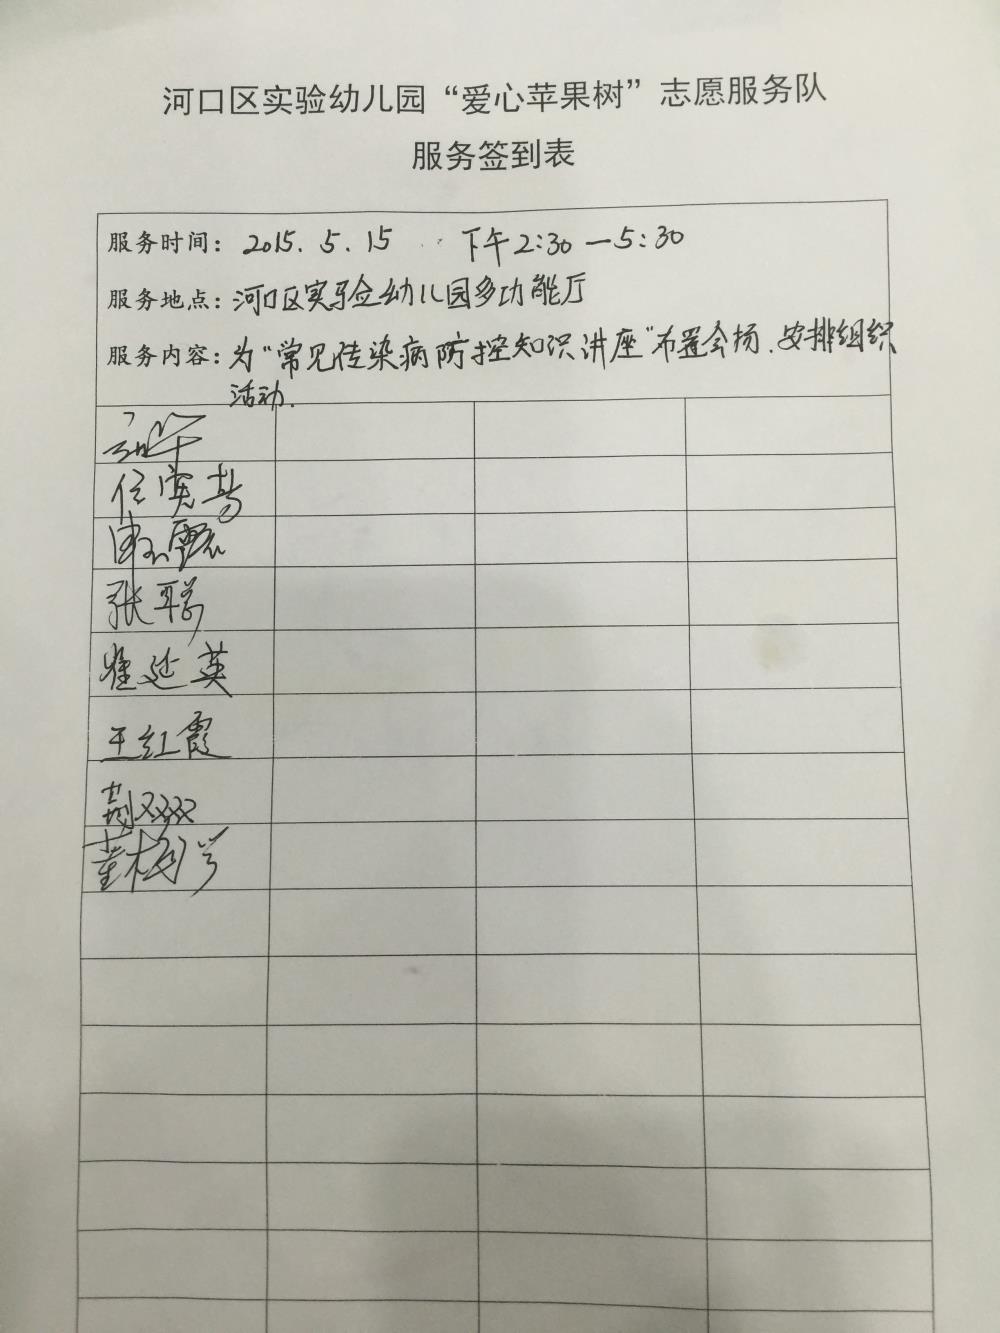 河口区实验幼儿园“爱心苹果树”志愿服务队
服务签到表
服务时间：2015.5.15 下午2:30—5:30
服务地点：河口区实验幼儿园多功能厅
服务内容：为“常见传染病防控知识讲座”布置会场、安排组织
活动.
张聪
崔延英
王红霞